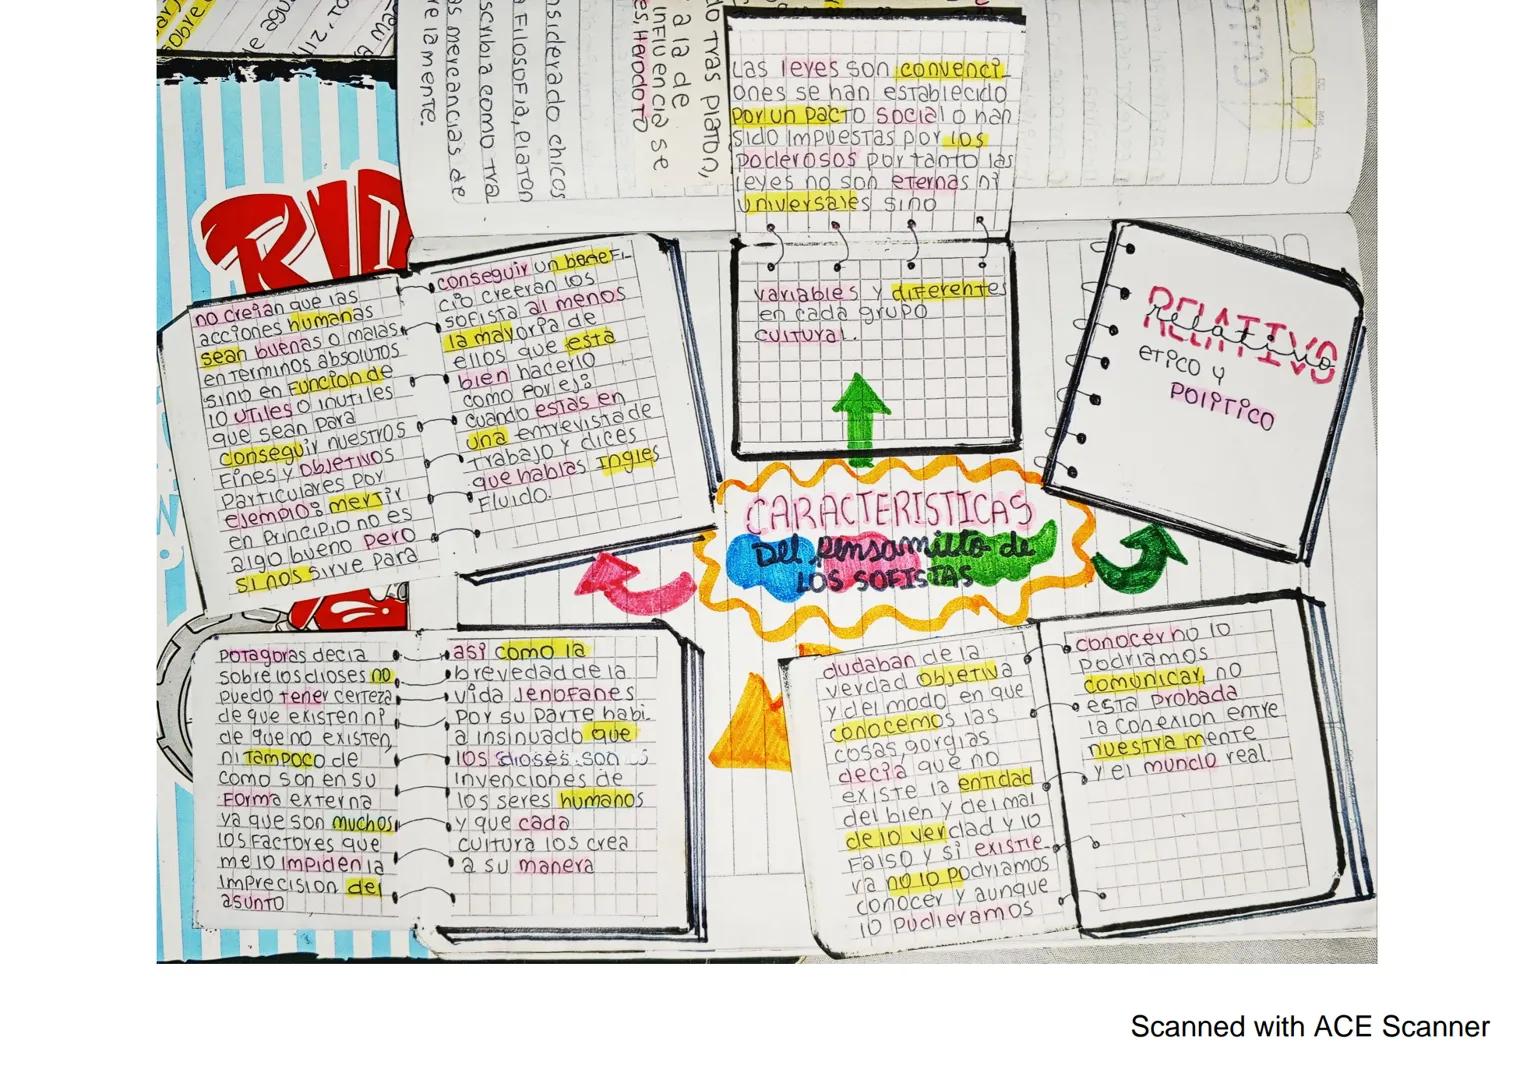 a la de
influencia se
es, Herodoto
do tras Platon,
nsiderado chicos
a Filosofia, Platon
scribia como tra
as mercancias de
re la mente.
Las leyes son convenci
ones se han establecido
por un pacto social o han
sido impuestas por los
poderosos por tanto las
leyes no son eternas ni
universales sino
variables y diferentes
en cada grupo
cultural.
RELATIVO
relativo
etico y
politico
no creian que las
acciones humanas
sean buenas o malas
en terminos absolutos
sino en funcion de
lo utiles o inutiles
que sean para
conseguir nuestros
fines y objetivos
particulares por
ejemplo: mertir
en principio no es
algo bueno pero
si nos sirve para
conseguir un benefi-
cio creeran los
sofista al menos
la mayoria de
ellos que esta
bien hacerlo
como por ej:
cuando estas en
una entrevista de
trabajo y dices
que hablas ingles
fluido.
CARACTERISTICAS
Del pensamiitto de
LOS SOFISTAS
Potagoras decia
sobre los dioses no
puedo tener certeza
de que existen ni
de que no existen,
ni tampoco de
como son en su
forma externa
ya que son muchos
los factores que
me lo impiden la
imprecision del
asunto
asi como la
brevedad de la
vida Jenofanes
por su parte habi-
a insinuado que
los dioses son
invenciones de
los seres humanos
y que cada
cultura los crea
a su manera
dudaban de la
verdad objetiva
y del modo en que
conocemos las
cosas gorgias
decia que no
existe la entidad
del bien y del mal
de lo verdad y lo
falso y si existie-
ra no lo podriamos
conocer y aunque
lo pudieramos
conocer no lo
podriamos
comunicar, no
esta probada
la conexion entre
nuestra mente
y el mundo real.
Scanned with ACE Scanner